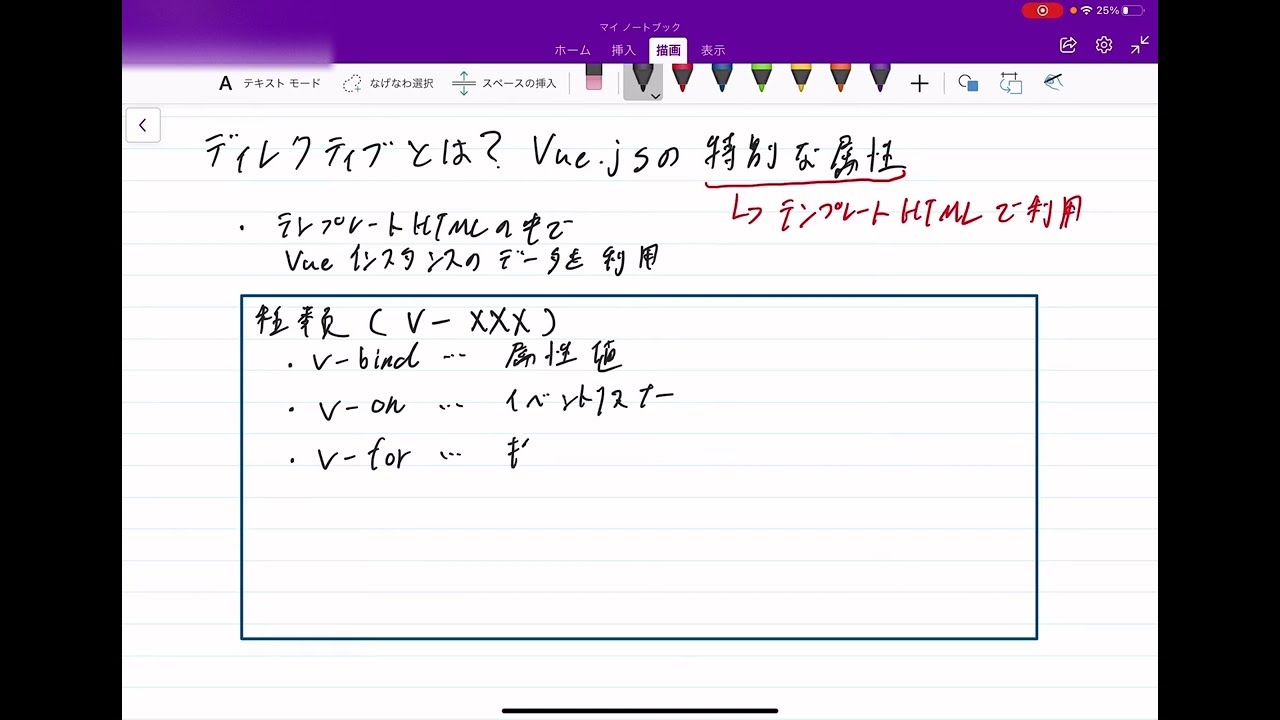 25%
マイ ノートブック
ホーム 挿入 描画 表示
A テキスト モード なげなわ選択 スペースの挿入
ディレクティブとは? Vue.jsの 特別な属性
↳ テンプレートHTMLで利用
・ テンプレートHTMLの中で
Vue インスタンスの データを 利用
種類 ( V- XXX )
・ v-bind … 属性値
・ v-on … イベントリスナー
・ v-for …